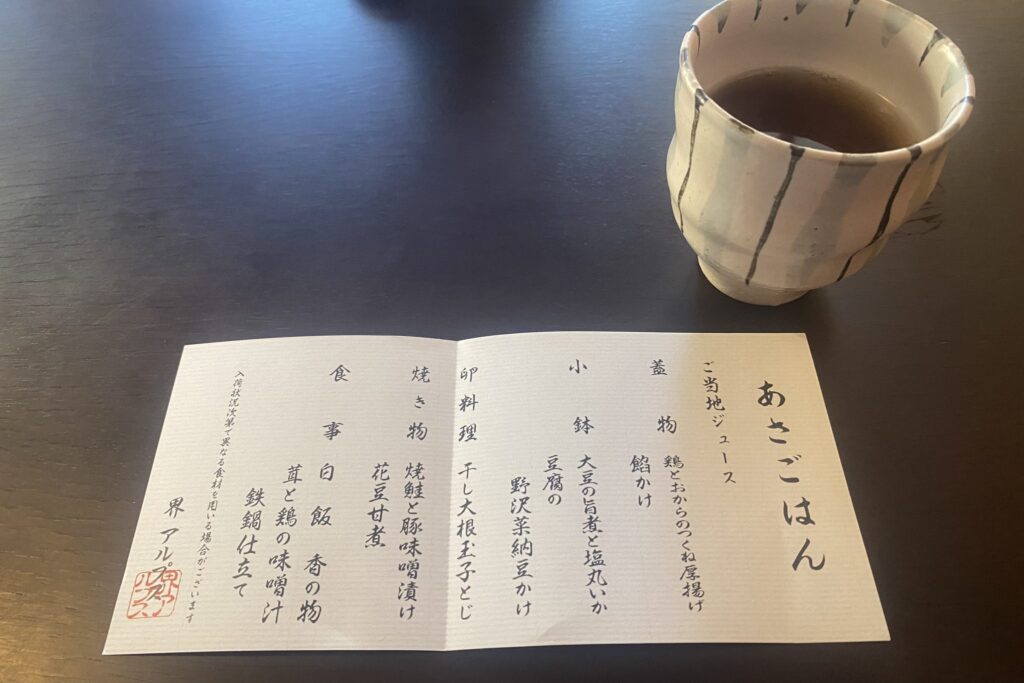 あさごはん
ご当地ジュース
蓋物 鶏とおからのつくね厚揚げ
餡かけ
小鉢 大豆の旨煮と塩丸いか
豆腐の
野沢菜納豆かけ
卵料理 干し大根玉子とじ
焼き物 焼鮭と豚味噌漬け
花豆甘煮
食事 白飯 香の物
茸と鶏の味噌汁
鉄鍋仕立て
入荷状況次第で異なる食材を用いる場合がございます
界 アルプス
界アルプス